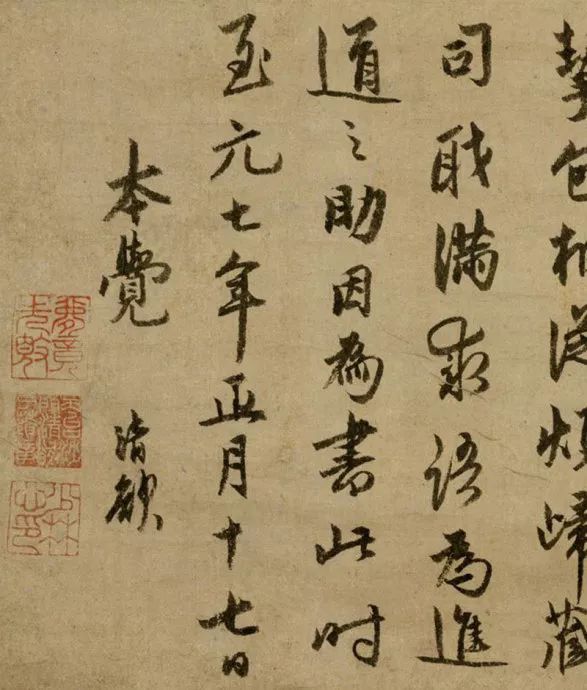 挈包相從煩歸藏
司職滿求語為進
道之助因為書此時
至元七年正月十七日
本覺 清欲